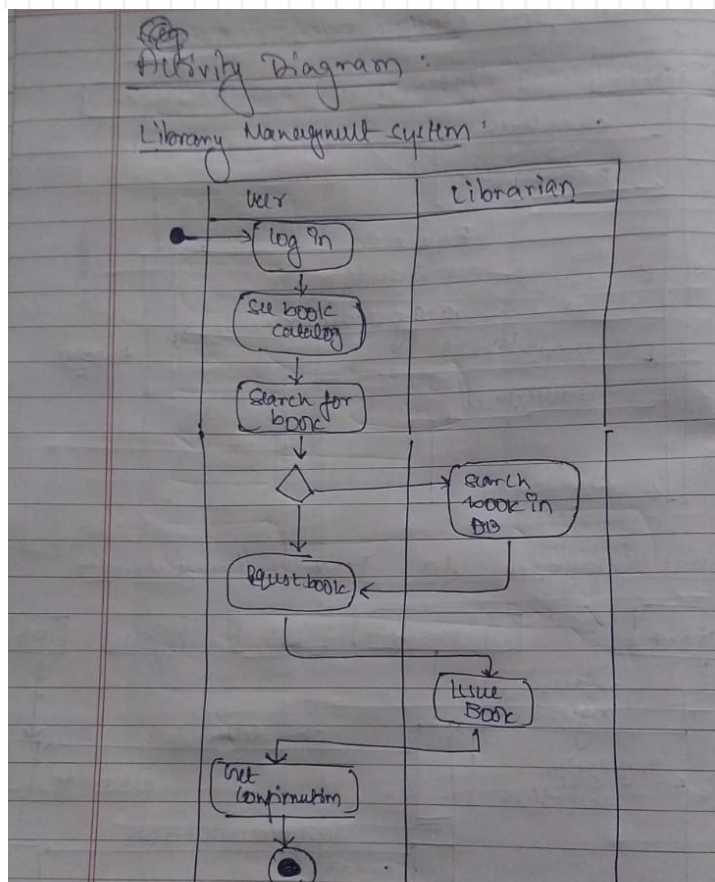 Activity Diagram :
Library Management System :
User
Librarian
Log in
See book
catalog
Search for
book
Search
book in
DB
Request book
Issue
Book
Get
Confirmation